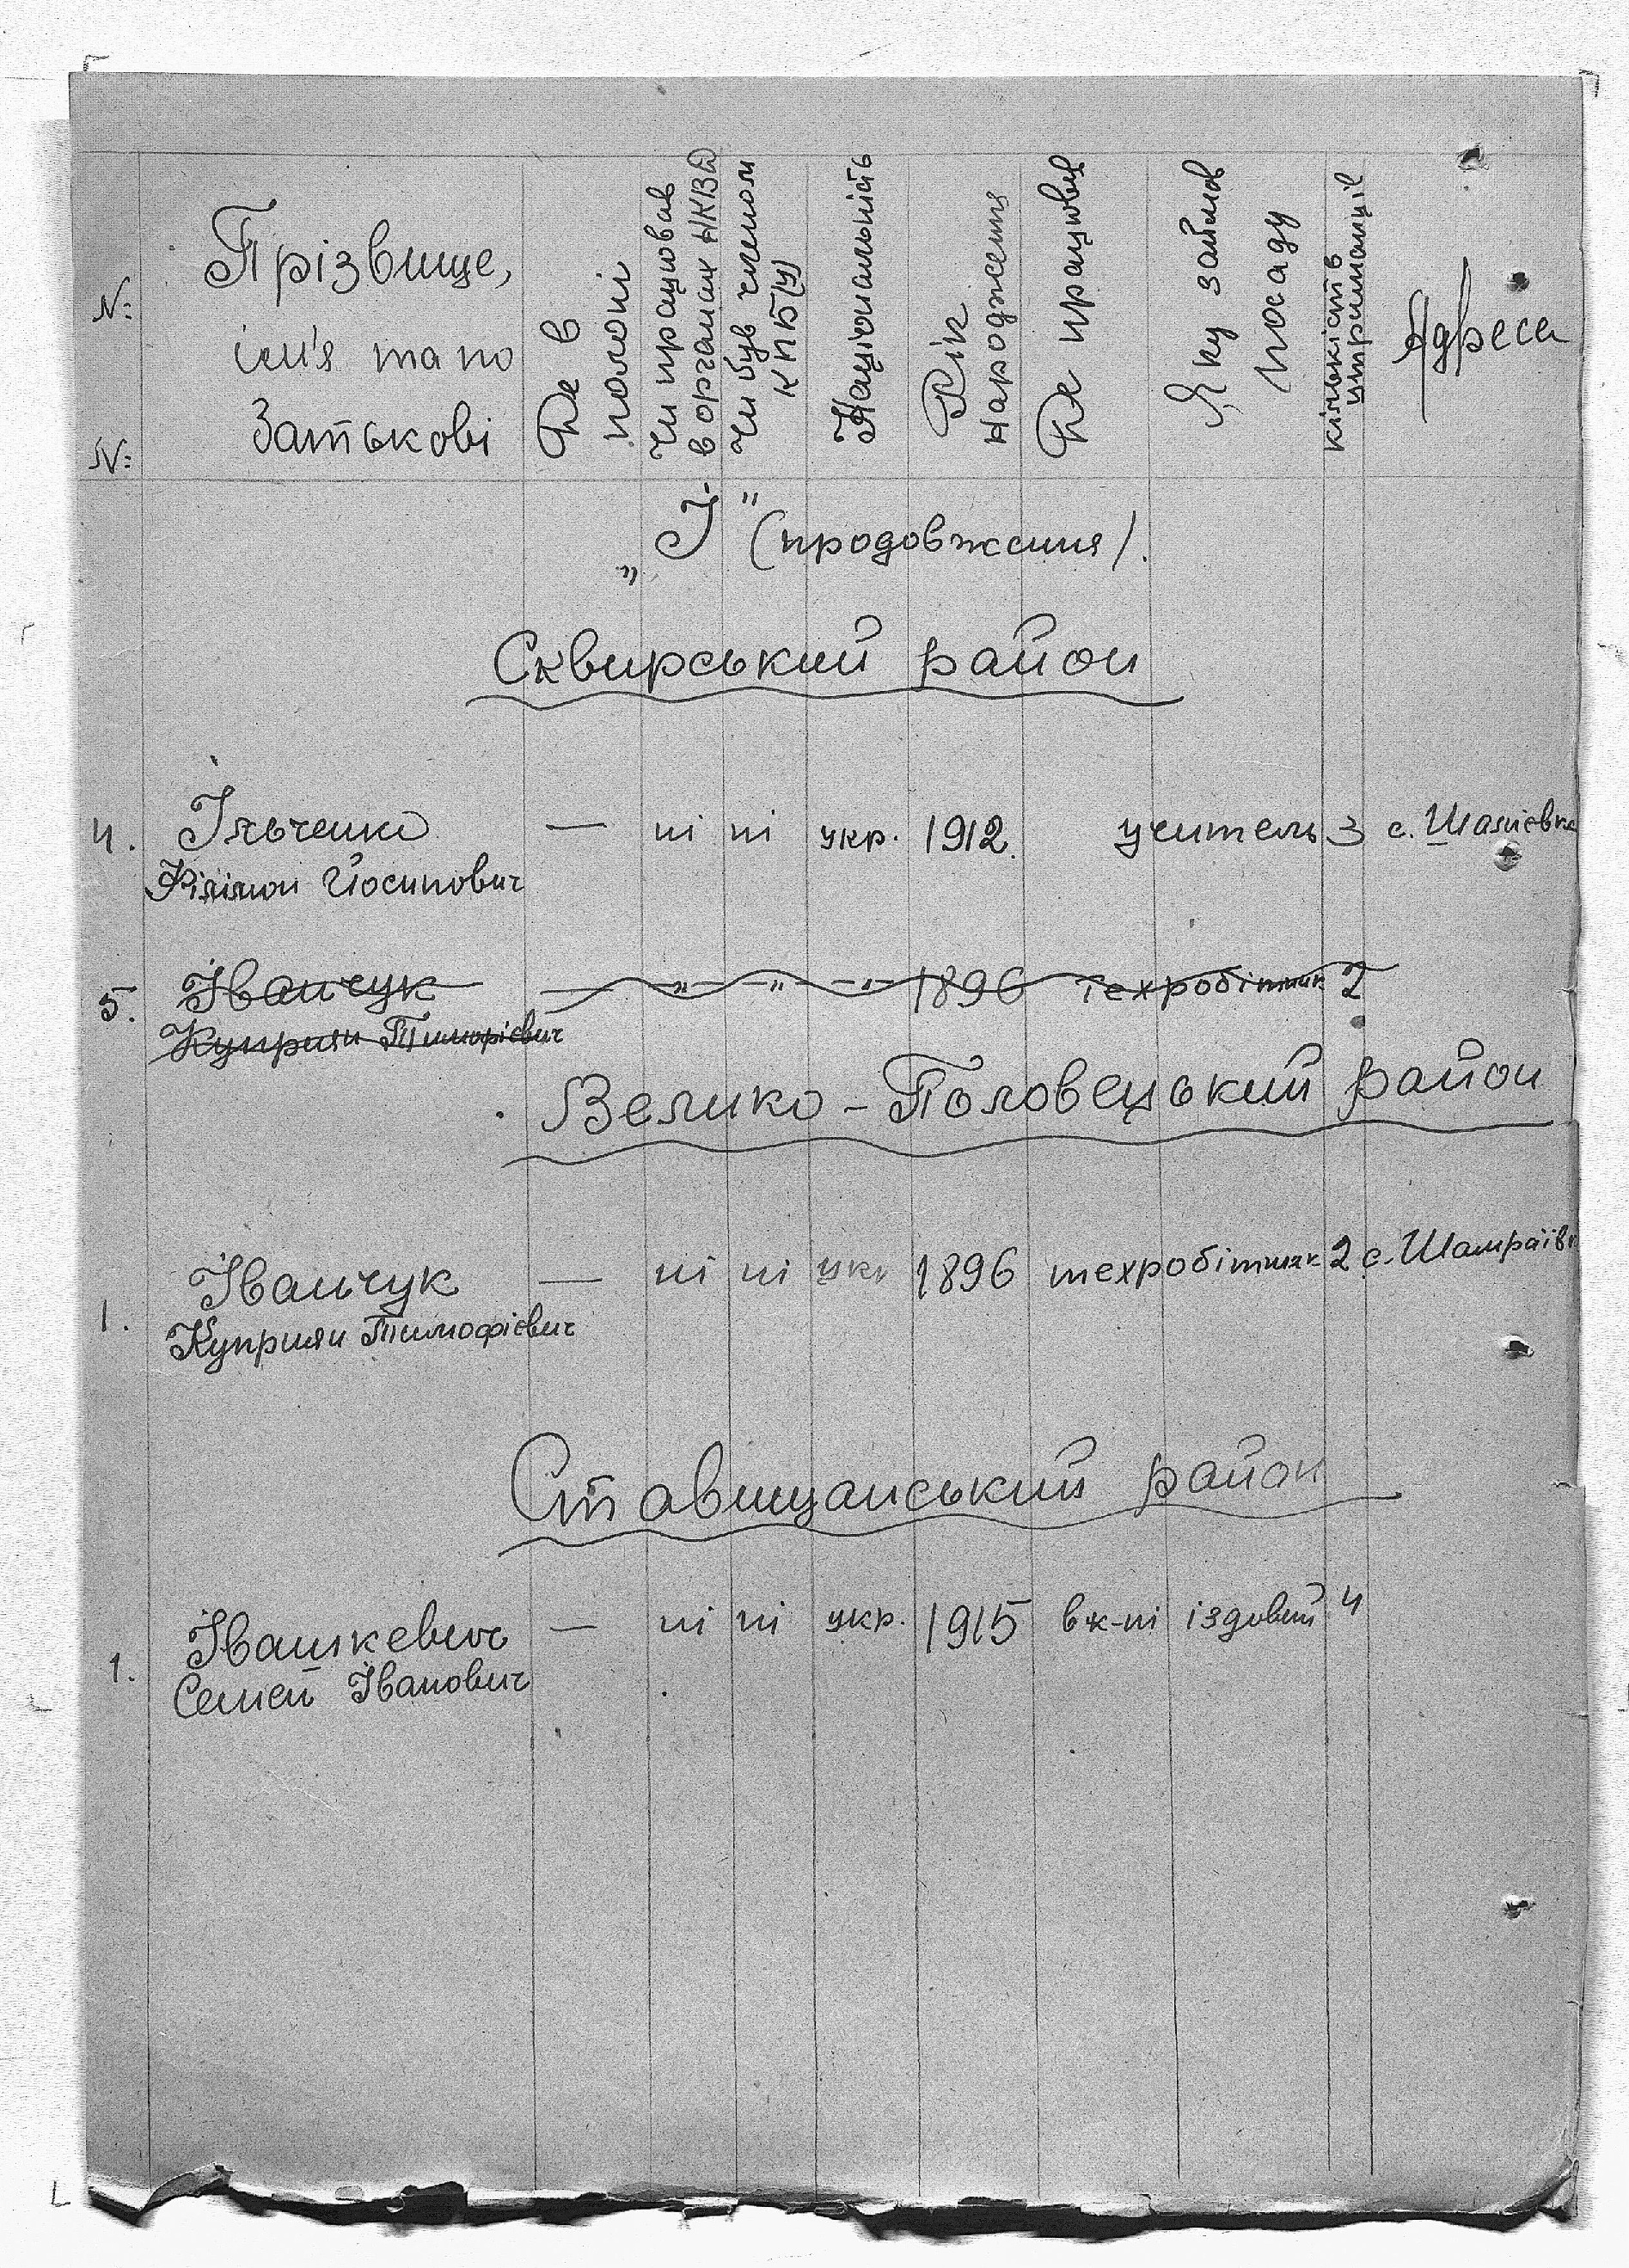 №
№
Прізвище,
ім'я та по
батькові
Де в
полоні
Чи працював
в органах НКВД
Чи був членом
КПБ(У)
Національність
Рік
народження
Де працював
Яку займав
посаду
кількість
утриманців
Адреса
„І" (продовження).
Сквирський район
4. Ільченко — ні ні укр. 1912. учитель 3 с.
Філімон Йосипович
5. Іванчук — „ — „ — „ 1896 техробітник 2
Куприян Тимофієвич
Велико-Половецький район
1. Іванчук — ні ні укр 1896 техробітник 2 с. Шамраївк
Куприян Тимофієвич
Ставищанський район
1. Івашкевич — ні ні укр. 1915 вк-ні іздовий 4
Семен Іванович